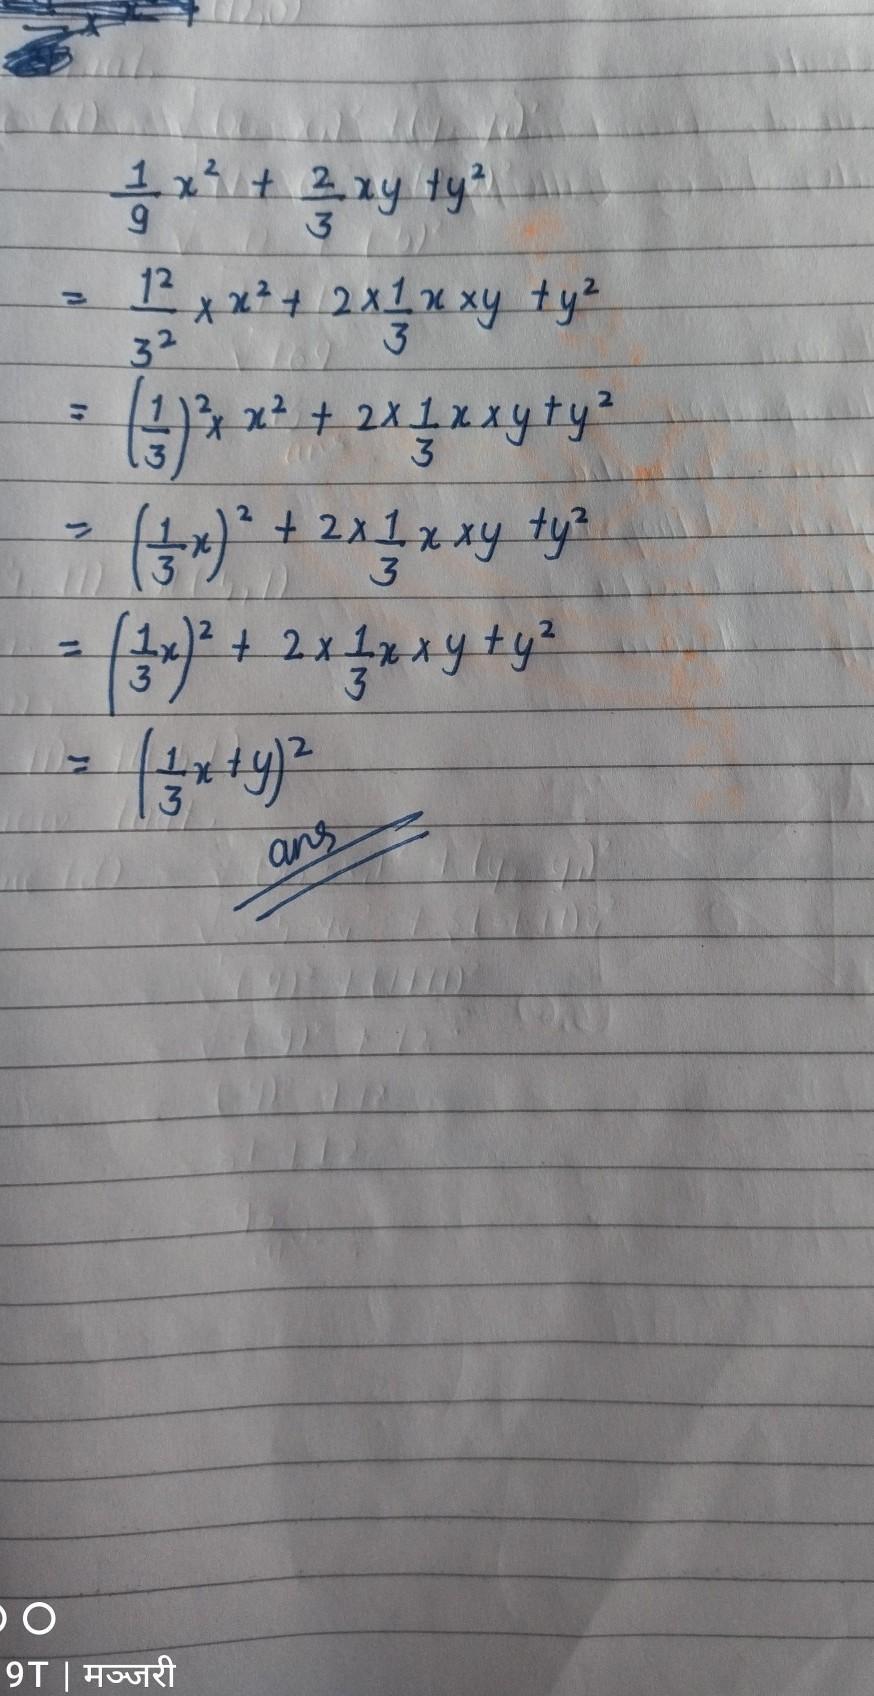 1/9 x² + 2/3 xy + y²
= 1²/3² × x² + 2 × 1/3 x × y + y²
= (1/3)² × x² + 2 × 1/3 x × y + y²
= (1/3 x)² + 2 × 1/3 x × y + y²
= (1/3 x)² + 2 × 1/3 x × y + y²
= (1/3 x + y)²
ans
9T | मञ्जरी